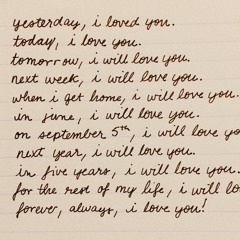 yesterday, i loved you.
today, i love you.
tomorrow, i will love you.
next week, i will love you.
when i get home, i will love you.
in june, i will love you.
on september 5th, i will love yo
next year, i will love you.
in five years, i will love you.
for the rest of my life, i will lo
forever, always, i love you!